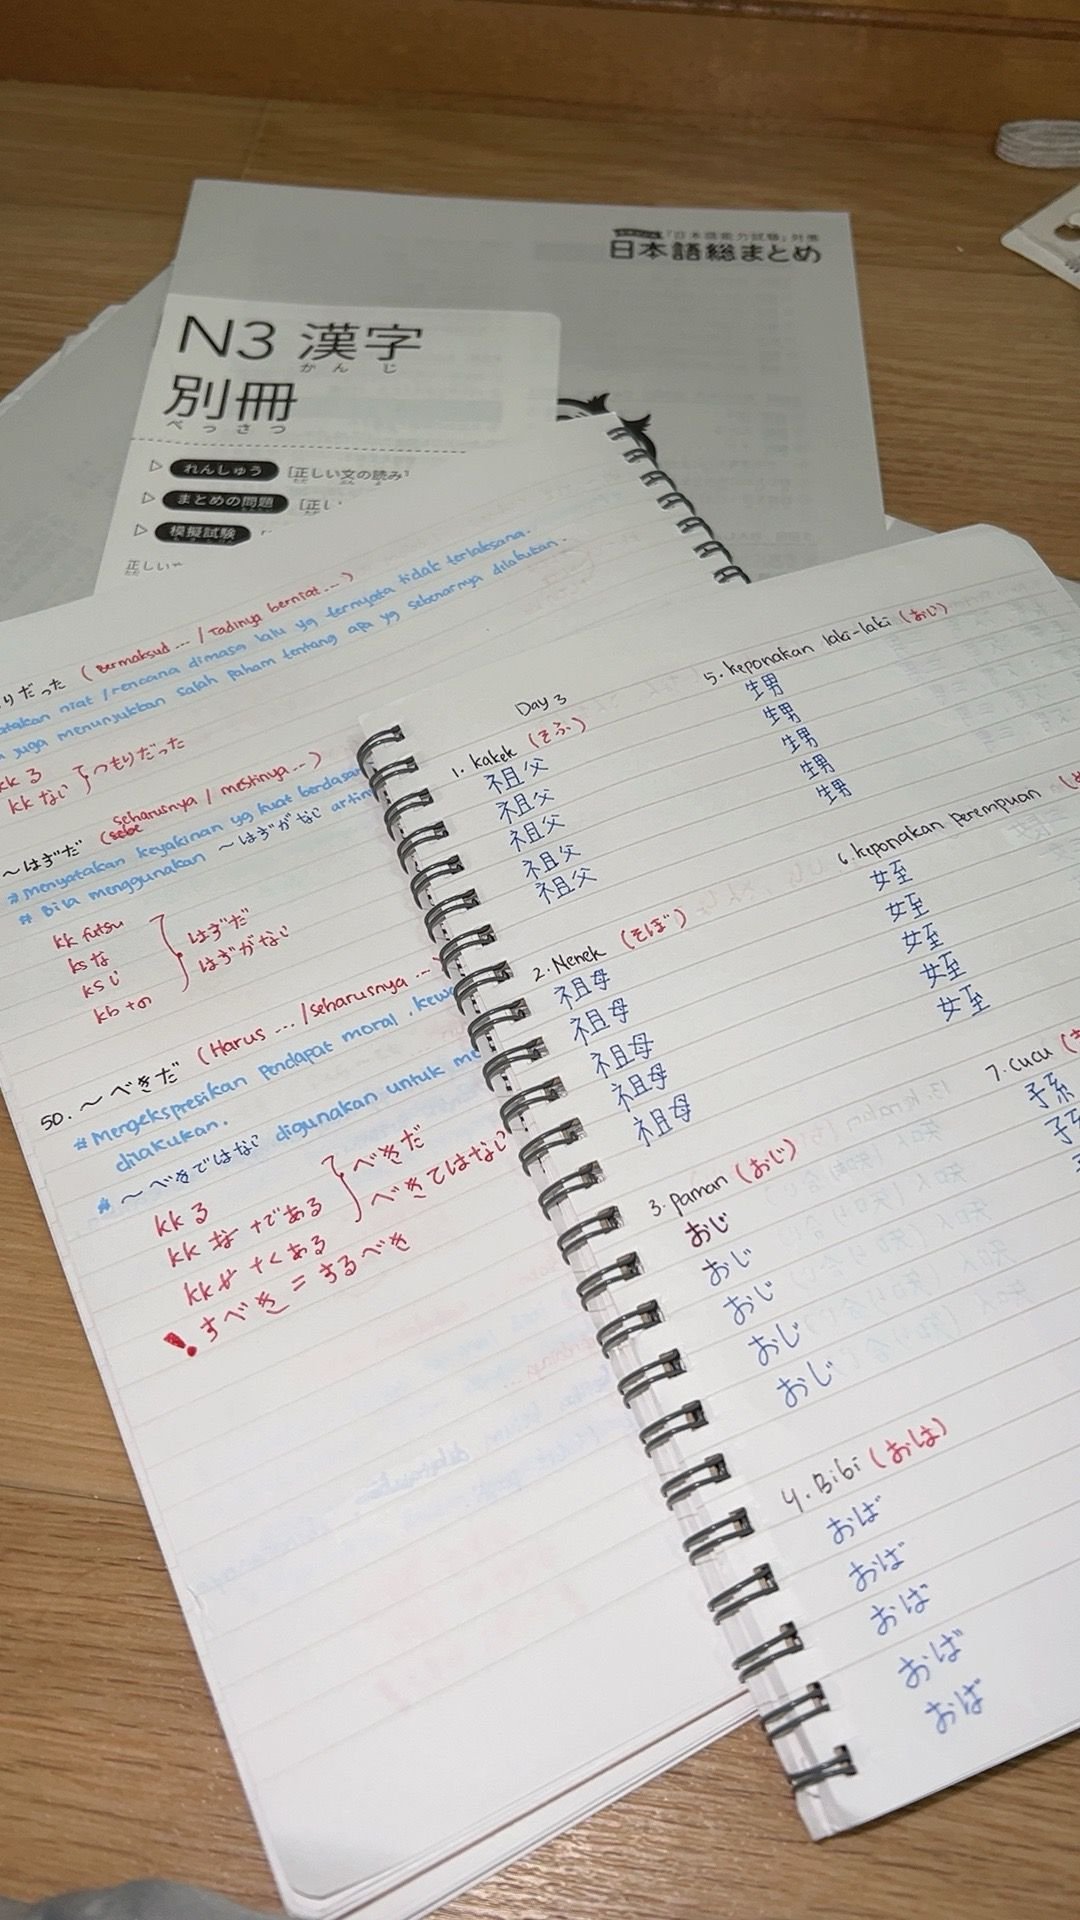 「日本語能力試験」対策
日本語総まとめ
N3 漢字
かんじ
別冊
べっさつ
れんしゅう [正しい文の読み
まとめの問題 [正しい
模擬試験
正しい
りだった (Bermaksud ... / Tadinya berniat ...)
atakan niat / rencana dimasa lalu yg ternyata tidak terlaksana.
juga menunjukkan salah paham tentang apa yg sebenarnya dilakukan.
kk る
kk ない } つもりだった
~はずだ (seharusnya / mestinya ...)
# menyatakan keyakinan yg kuat berdasar
# Bila menggunakan ~はずがない artin
kk futsu
ks な
ks い
kb + の
はずだ
はずがない
50. ~べきだ (Harus ... / seharusnya ...
# Mengekspresikan pendapat moral, kewa
dilakukan.
# ~べきではない digunakan untuk me
kk る
kk な + である
+ くある
べきだ
べきてはない
! すべき = するべき
Day 3
1. kakek (そふ)
祖父
祖父
祖父
祖父
祖父
2. Nenek (そぼ)
祖母
祖母
祖母
祖母
祖母
3. paman (おじ)
おじ
おじ
おじ
おじ
おじ
4. Bibi (おは)
おば
おば
おば
おば
おば
5. keponakan laki-laki (おい)
生男
生男
生男
生男
生男
6. keponakan perempuan (め
女至
女至
女至
女至
女至
7. cucu (ま
子系
子系